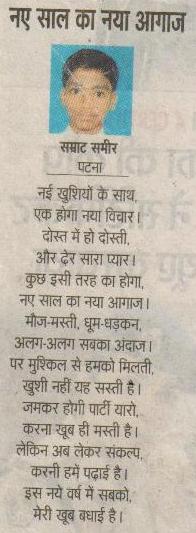 नए साल का नया आगाज
सम्राट समीर
पटना
नई खुशियों के साथ,
एक होगा नया विचार।
दोस्त में हो दोस्ती,
और ढेर सारा प्यार।
कुछ इसी तरह का होगा,
नए साल का नया आगाज।
मौज-मस्ती, धूम-धड़कन,
अलग-अलग सबका अंदाज।
पर मुश्किल से हमको मिलती,
खुशी नहीं यह सस्ती है।
जमकर होगी पार्टी यारो,
करना खूब ही मस्ती है।
लेकिन अब लेकर संकल्प,
करनी हमें पढ़ाई है।
इस नये वर्ष में सबको,
मेरी खूब बधाई है।